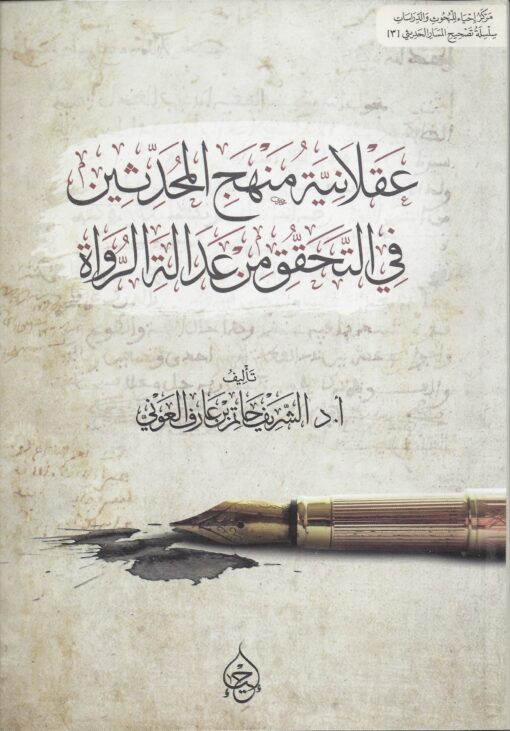 مركز إحياء للبحوث والدراسات
سلسلة تصحيح المسار الحديثي [٣]
عَقلانيَّة مَنهَج المُحَدِّثِين
في التَّحَقُّقِ مِن عَدَالةِ الرُّوَاة
تأليفُ
أ.د الشريف حاتم بن عارف العوني
إحياء